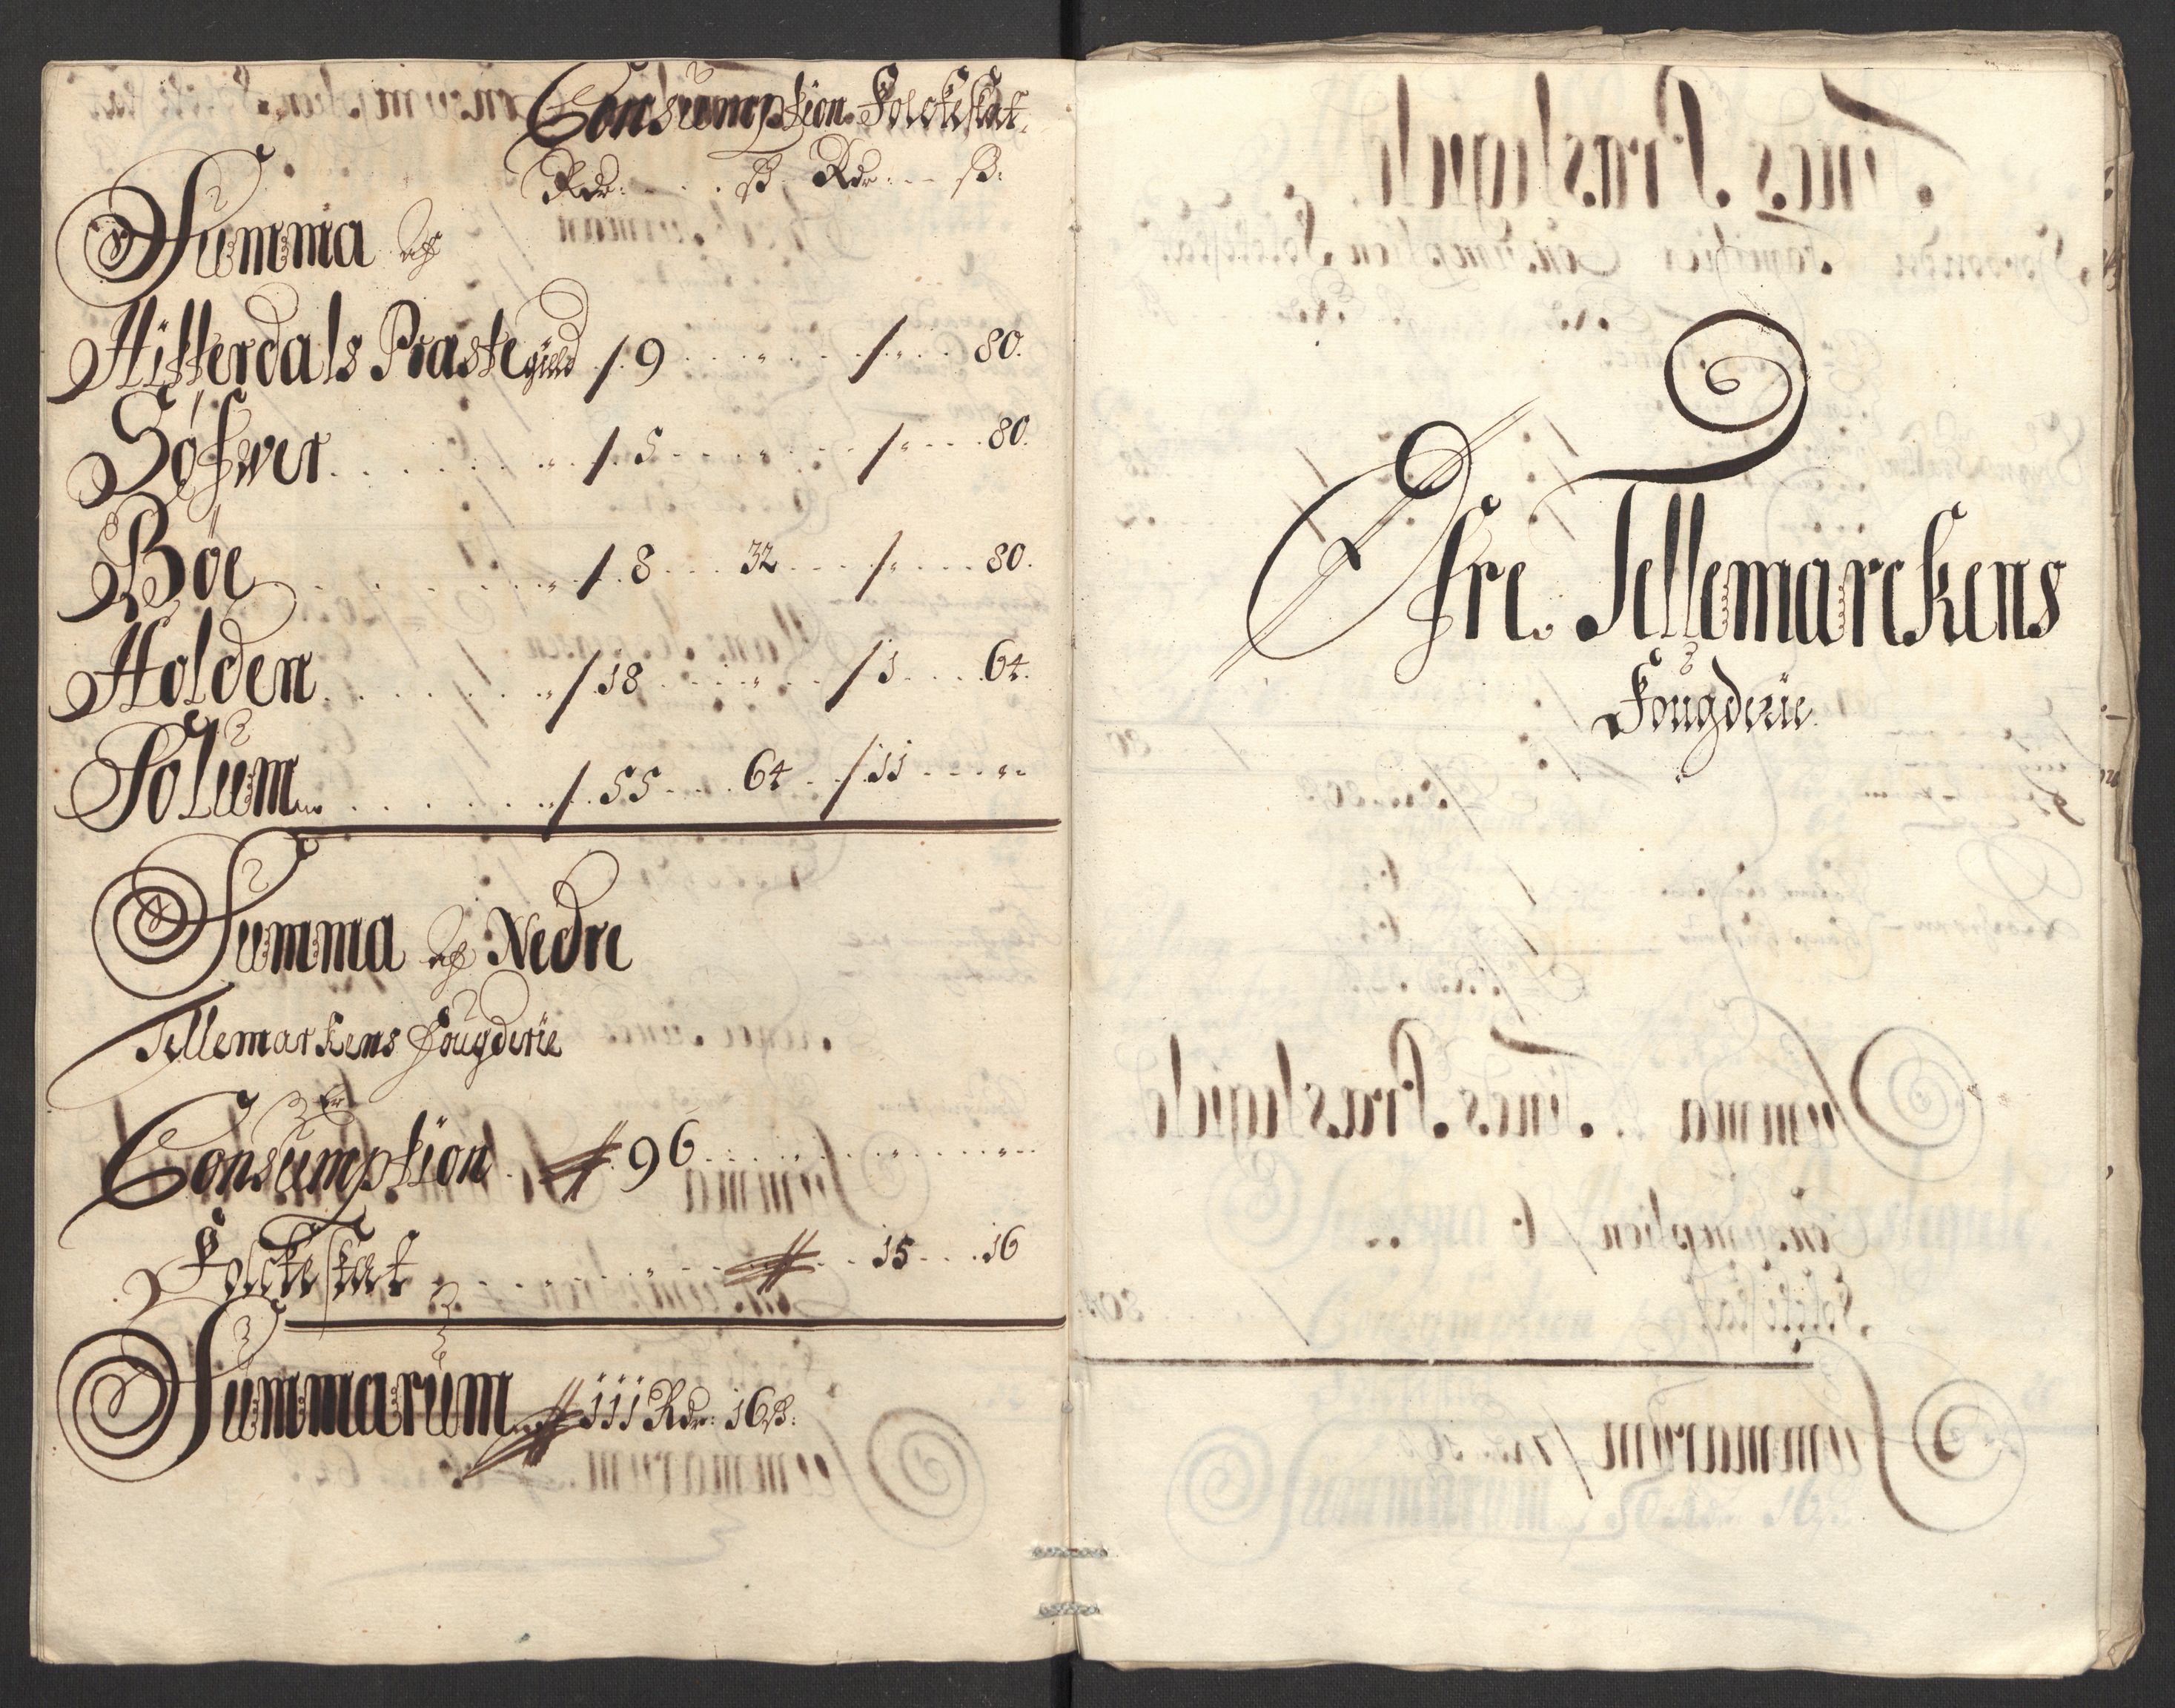 Consumption. Folcheskat.
Rdr: ß Rdr: ß:
Summa af
Hitterdals Præstegield / 9 „ / „ 80.
Böe / 8 32 / „ 80.
Holden / 18 „ / 1 64.
Solum / 55 64 / 11 „
Summa af Nedre
Tellemarkens Fougderie
Consumption 96 „
Folckeskat „ 15 16
Summarum 111 Rdr: 16 ß:
Öfre Tellemarckens
Fougderie